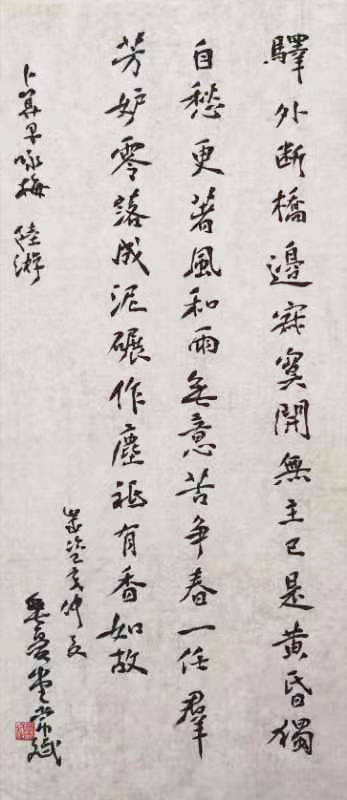 驛外断橋邊寂寞開無主已是黄昏獨
自愁更著風和雨無意苦争春一任羣
芳妒零落成泥碾作塵祇有香如故
卜算子咏梅 陸游
歲次己亥仲夏